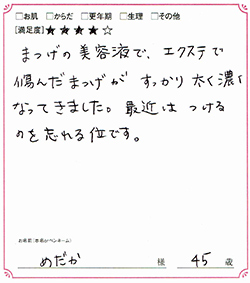 □お肌 □からだ □更年期 □生理 □その他
[満足度]★★★★☆
まつげの美容液で、エクステで
傷んだまつげが すっかり太く濃く
なってきました。最近は つける
のを忘れる位です。
お名前(本名orペンネーム)
めだか 様 45 歳